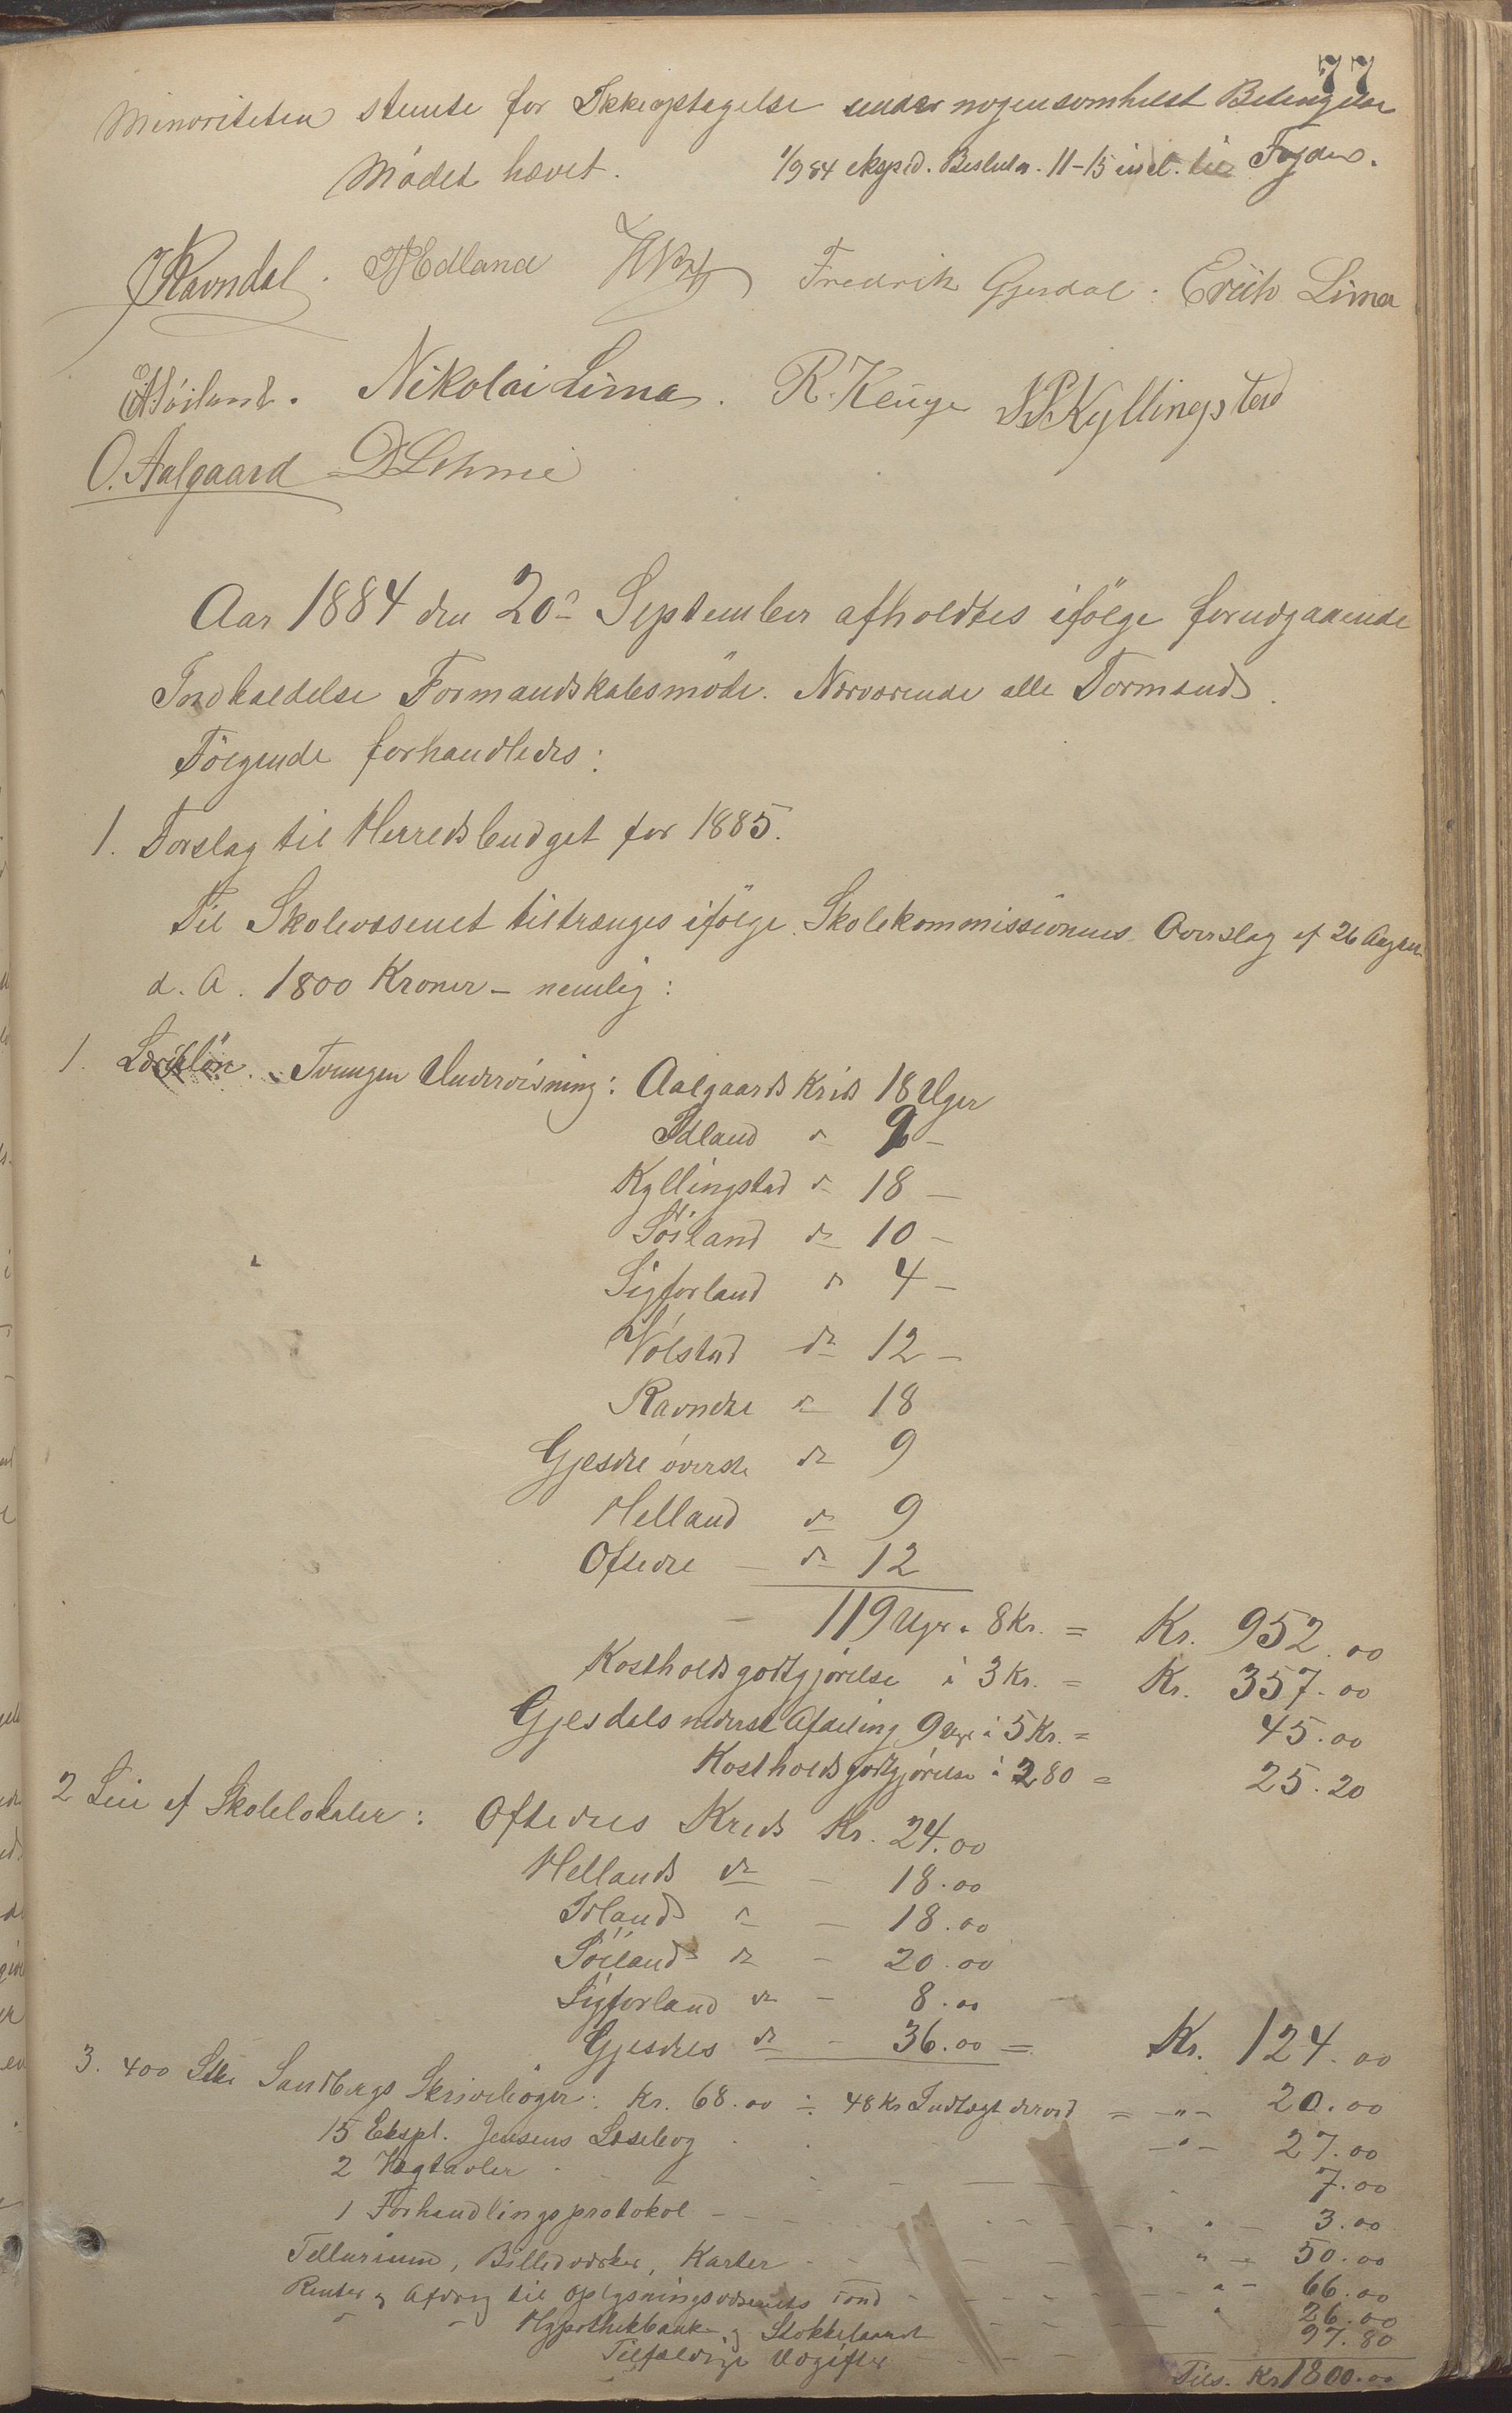 77
Minoriteten stemte for Ikkeoptagelse under nogensomhelst Betingelse
Mødet hævet. 1/9 84 exped. Beslutn. 11-15 incl. til Fogden.
J Ravndal. T Edland Fredrik Gjesdal. Erik Lima
Söiland. Nikolai Lima. R. Kenge S P Kyllingstad
O. Aalgaard
Aar 1884 den 20de September afholdtes ifölge forudgaaende
Indkaldelse Formandskabsmöde. Nærværende alle Formænd.
Fölgende forhandledes:
1. Forslag til Herredsbudget for 1885.
Til Skolevæsenet tiltrænges ifölge Skolekommissionens Overslag af 26 August
d. A. 1800 Kroner – nemlig:
1. Lærerlön. Tvungen Undervisning: Aalgaards Kreds 18 Uger
Idland do 9 –
Kyllingstad do 18 –
Söiland do 10 –
Sigforland do 4 –
Vølstad do 12 –
Ravndal do 18
Gjesdal øverste do 9
Helland do 9
Oftedal – do 12
119 Uger à 8 Kr. = Kr. 952.00
Kostholdsgodtgjörelse à 3 Kr. = Kr. 357.00
Gjesdals nederste Afdeling 9 Uger à 5 Kr. = 45.00
Kostholdsgodtgjörelse à 2 80 = 25.20
2 Leie af Skolelokaler: Oftedals Kreds Kr. 24.00
Hellands do – 18.00
Idlands do – 18.00
Söilands do – 20.00
Sigforland do – 8.00
Gjesdals do – 36.00 = Kr. 124.00
3. 400 Stkr Sandbergs Skrivebøger: Kr. 68.00 ÷ 48 Kr Indtægt derved = –"– 20.00
15 Expl. Jensens Læsebog –"– 27.00
2 Vægtavler 7.00
1 Forhandlingsprotokol – 3.00
Tellurium, Billedværker, Karter " – 50.00
Renter og Afdrag til Oplysningsvæsenets Fond " – 66.00
– – Hypothekbanken og Stokkeland " 26.00
Tilfældige Udgifter 97.80
Tils. Kr 1800.00